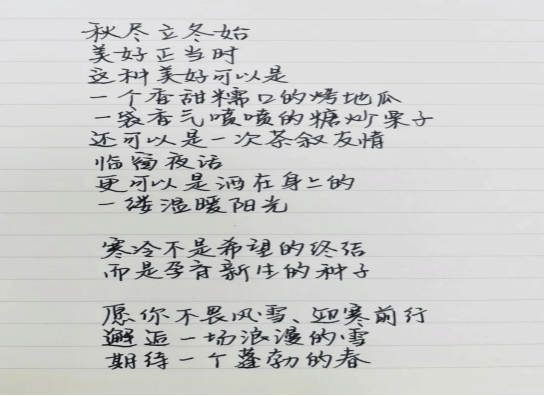 秋尽立冬始
美好正当时
这种美好可以是
一个香甜糯口的烤地瓜
一袋香气喷喷的糖炒栗子
还可以是一次茶叙友情
临窗夜话
更可以是洒在身上的
一缕温暖阳光
寒冷不是希望的终结
而是孕育新生的种子
愿你不畏风雪、迎寒前行
邂逅一场浪漫的雪
期待一个蓬勃的春